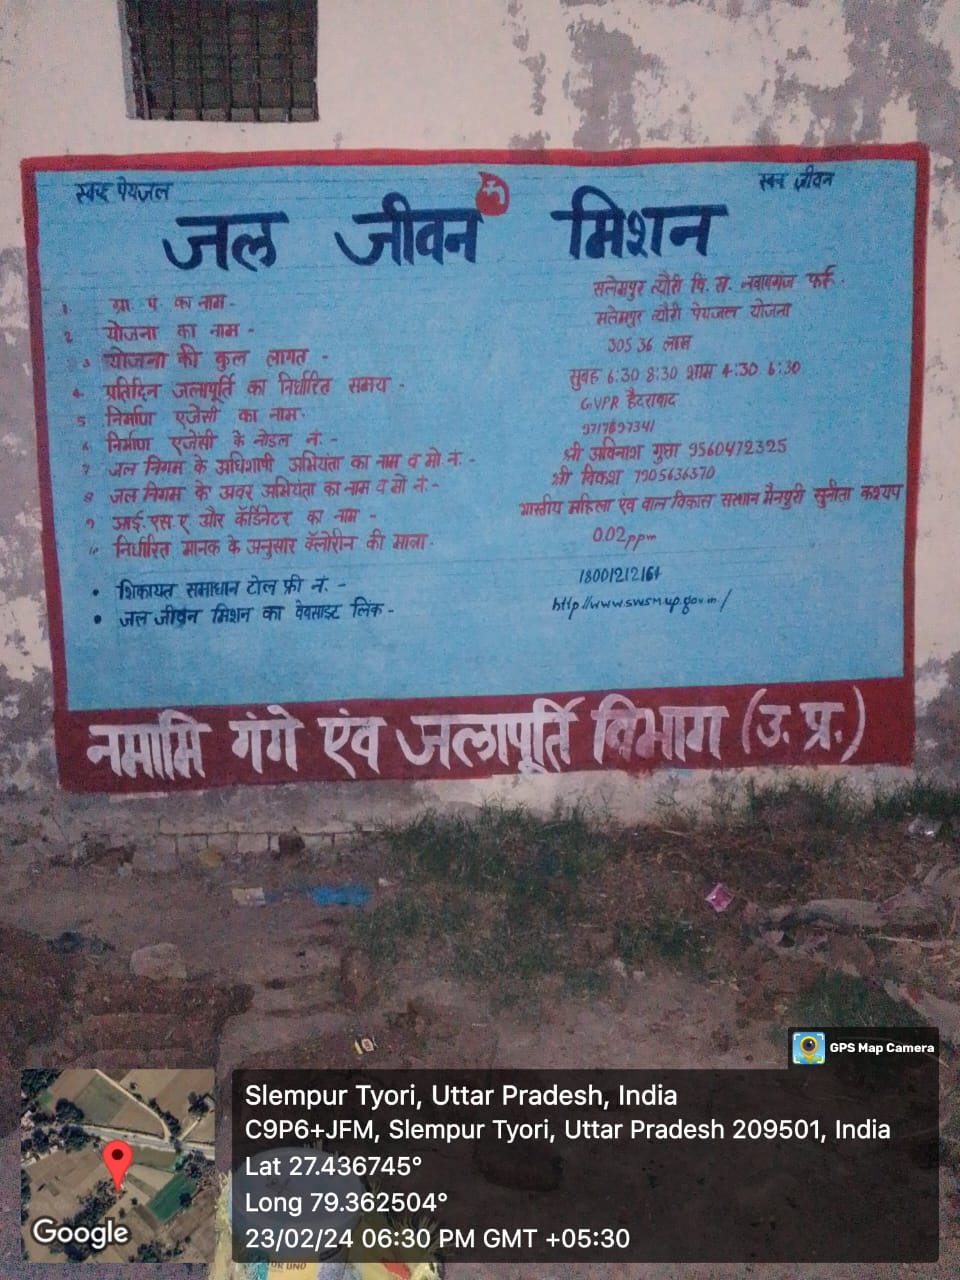 स्वच्छ पेयजल
स्वच्छ जीवन
जल जीवन मिशन
1. ग्रा. पं. का नाम- सलेमपुर त्यौरी वि. ख. नवाबगंज फर्रु.
2 योजना का नाम - सलेमपुर त्यौरी पेयजल योजना
3 योजना की कुल लागत - 305.36 लाख
4. प्रतिदिन जलापूर्ति का निर्धारित समय - सुबह 6:30 8:30 शाम 4:30 6:30
5 निर्माण एजेंसी का नाम- GVPR हैदराबाद
6 निर्माण एजेंसी के नोडल नं.- 9717897341
7 जल निगम के अधिशाषी अभियंता का नाम व मो. नं.- श्री अविनाश गुप्ता 9560472325
8 जल निगम के अवर अभियंता का नाम व मो नं.- श्री विकाश 7905636370
9 आई. एस. ए और कॅार्डिनेटर का नाम - भारतीय महिला एंव बाल विकास संस्थान मैनपुरी सुनीता कश्यप
10 निर्धारित मानक के अनुसार क्लोरीन की मात्रा- 0.02ppm
• शिकायत समाधान टोल फ्री नं.- 18001212164
• जल जीवन मिशन का वेबसाइट लिंक - http//www.swsm.up.gov.in./
नमामि गंगे एंव जलापूर्ति विभाग (उ. प्र.)
GPS Map Camera
Slempur Tyori, Uttar Pradesh, India
C9P6+JFM, Slempur Tyori, Uttar Pradesh 209501, India
Lat 27.436745°
Long 79.362504°
23/02/24 06:30 PM GMT +05:30
Google